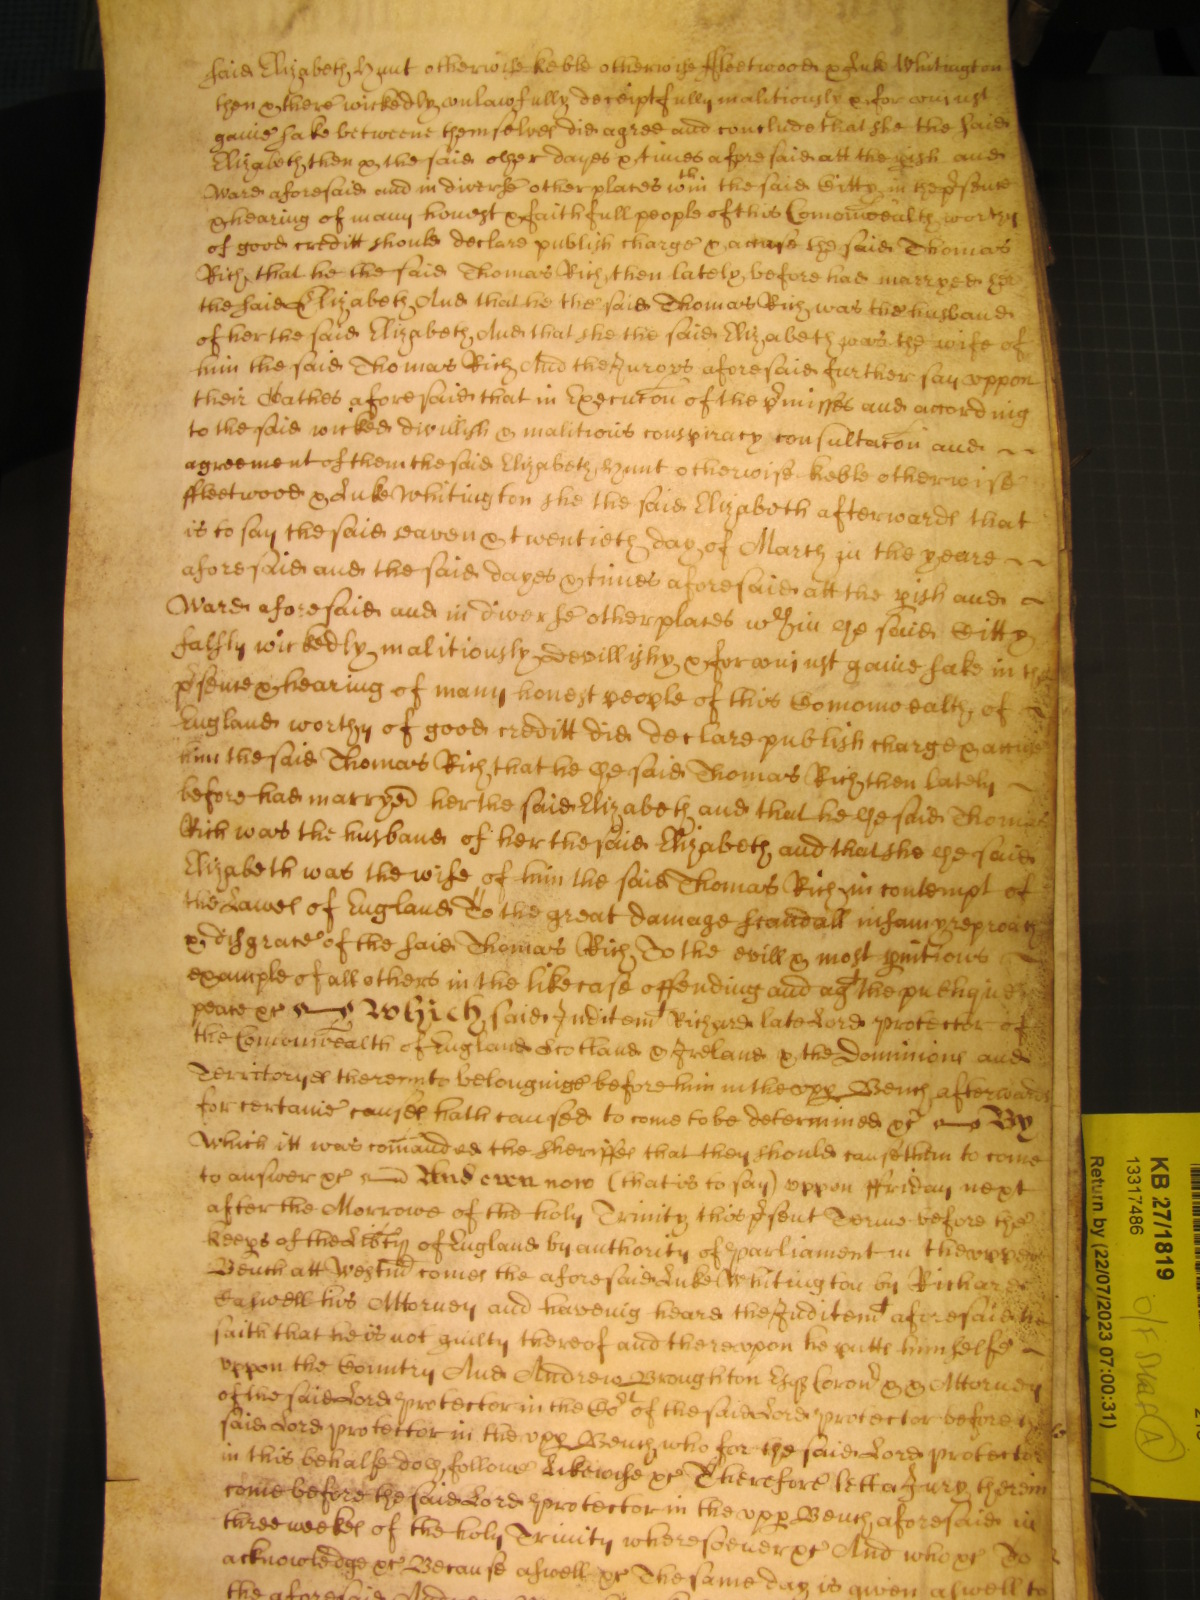 said Elizabeth Hunt otherwise Keble otherwise ffleetwood & Luke Whitington
then & there wickedly unlawfully deceiptfully malitiously & for uniust
gaine sake betweene themselves did agree and conclude that she the said
Elizabeth then & the said other dayes & times aforesaid att the pish and
Ward aforesaid and in diverse other places wthin the said Citty in the psence
& hearing of many honest & faithfull people of this Comonwealth worthy
of good creditt should declare publish charge & accuse the said Thomas
Rich that he the said Thomas Rich then lately before had marryed her
the said Elizabeth And that he the said Thomas Rich was the husband
of her the said Elizabeth And that she the said Elizabeth was the wife of
him the said Thomas Rich And the Jurors aforesaid further say uppon
their Oathes aforesaid that in Execucon of the pmisses and according
to the said wicked divilish & malitious conspiracy consultacon and
agreement of them the said Elizabeth Hunt otherwise Keble otherwise
ffleetwood & Luke Whitington she the said Elizabeth afterwards that
is to say the said seaven & twentieth day of March in the yeare
aforesaid and the said dayes & times aforesaid att the pish and
Ward aforesaid and in diverse other places wthin the said Citty
falsly wickedly malitiously devillishly & for uniust gaine sake in the
psence & hearing of many honest people of this Comonwealth of
England worthy of good creditt did declare publish charge & accuse
him the said Thomas Rich that he the said Thomas Rich then lately
before had marryed her the said Elizabeth and that he the said Thomas
Rich was the husband of her the said Elizabeth and that she the said
Elizabeth was the wife of him the said Thomas Rich in contempt of
the Lawes of England To the great damage scandall infamy reproach
& disgrace of the said Thomas Rich To the evill & most pnitious
example of all others in the like case offending and agt the publique
peace &c Which said Inditemt Richard late Lord Protector of
the Comonwealth of England Scotland & Ireland & the Dominions and
Territoryes thereunto belonginge before him in the upp Bench afterwards
for certaine causes hath caused to come to be determined &c By
Which itt was comanded the Sheriffes that they should cause them to come
to answer &c And even now (that is to say) uppon ffriday next
after the Morrowe of the holy Trinity this psent Terme before the
keeps of the Libty of England by authority of Parliament in the upper
Bench att Westmr comes the aforesaid Luke Whitington by Richard
Caswell his Attorney and haveing heard the Inditemt aforesaid he
saith that he is not guilty thereof and thereupon he putts himselfe
uppon the Country And Andrew Broughton Esq Coron & Attorney
of the said Lord Protector in the Cort of the said Lord Protector before the
said Lord Protector in the upp Bench who for the said Lord Protector
in this behalfe doth followe Likewise &c Therefore lett a Jury therein
come before the said Lord Protector in the upp Bench aforesaid in
three weekes of the holy Trinity wheresoever &c And who &c To
acknowledge &c Because aswell &c The same day is given aswell to
the aforesaid Andrew
KB 27/1819
13317486
Return by (22/07/2023 07:00:31)